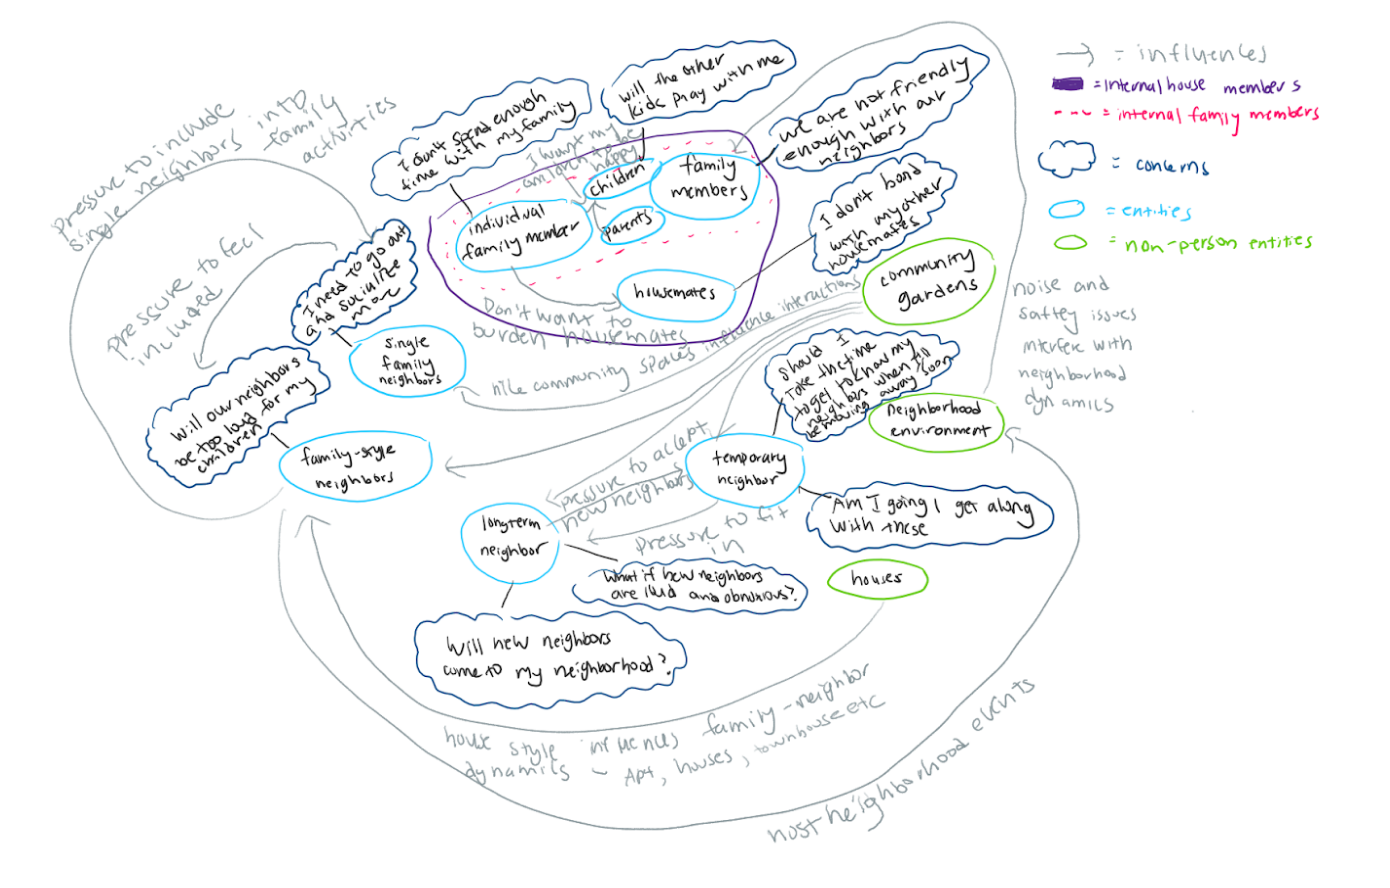 → = influences
= internal house members
--- = internal family members
= concerns
= entities
= non-person entities
Pressure to include
single neighbors into
family
activities
I don't spend enough
time with my family
will the other
kids play with me
we are not friendly
enough with our
neighbors
I want my
children to be
happy
children
family
members
individual
family member
parents
housemates
Don't want to
burden housemates
I don't bond
with my other
housemates
community
gardens
noise and
saftey issues
interfere with
neighborhood
dynamics
Pressure to feel
included
I need to go out
and socialize
more
single
family
neighbors
nice community spaces influence interactions
Will our neighbors
be too loud for my
children
family-style
neighbors
should I
take the time
to get to know my
neighbors when I'll
be moving away soon
neighborhood
environment
temporary
neighbor
pressure to accept
new neighbors
pressure to fit
in
longterm
neighbor
Am I going I get along
with these
What if new neighbors
are loud and obnoxious?
houses
Will new neighbors
come to my neighborhood?
house style influences family-neighbor
dynamics - Apt, houses, townhouse etc
host neighborhood events